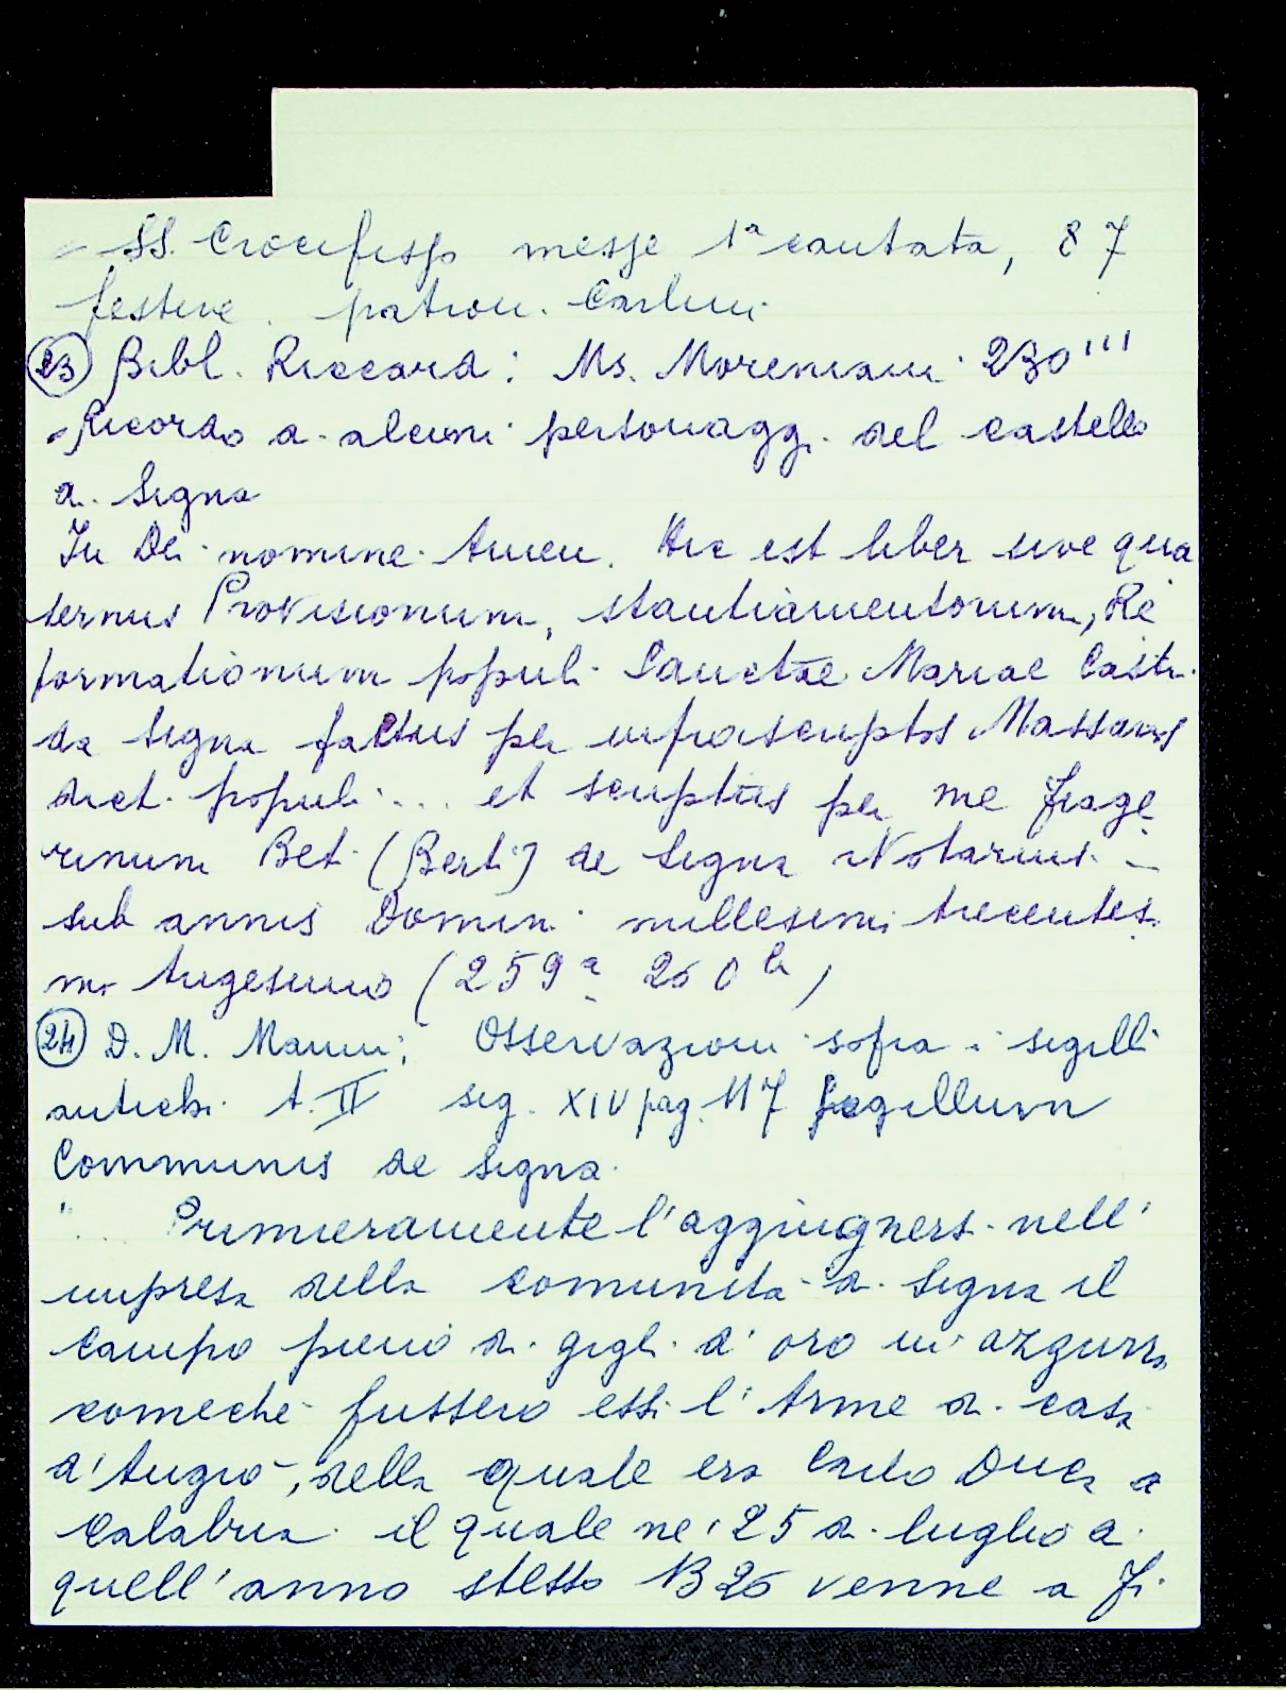 - SS. Crocifisso messe 1ª cantata, 87
festive. patron. Carlini
(23) Bibl. Riccard: Ms. Moreniani 230'''
Ricordo di alcuni personaggi del castello
di Signa
In Dei nomine Amen. Hic est liber sive qua
ternus Provisionum, stantiamentorum, Re
formationum populi Sanctae Mariae Castri
de Signa factus per infrascriptos Massarios
dicti populi ... et scriptus per me
rinum Beti (Berti) de Signa Notarius -
sub annis Domini millesimi trecentesi
mo (259ª 260b)
(24) D. M. Manni; Osservazioni sopra i sigilli
antichi t. II sig. XIV pag. 117 Sigillum
Communis de Signa.
" ... Primieramente l'aggiugnersi nell'
impresa della comunità di Signa il
campo pieno di gigli d'oro in azzurro
comechè fussero essi l'Arme di casa
d'Angiò, della quale era Carlo Duca di
Calabria il quale ne' 25 di luglio di
quell'anno stesso 1326 venne a Fi